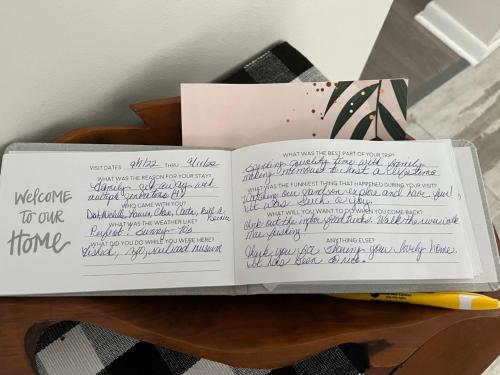 WELCOME
TO OUR
HOME
VISIT DATES 9/7/22 THRU 9/11/22
WHAT WAS THE REASON FOR YOUR STAY?
Family get away with
multiple generations
WHO CAME WITH YOU?
WHAT WAS THE WEATHER LIKE?
Perfect! Sunny - 70s
WHAT DID YOU DO WHILE YOU WERE HERE?
Fished, zoo, railroad museum
WHAT WAS THE BEST PART OF YOUR TRIP?
Spending quality time with family
making memories to last a lifetime
WHAT WAS THE FUNNIEST THING THAT HAPPENED DURING YOUR VISIT?
Watching our grandson explore and have fun!
It was such a joy.
WHAT WILL YOU WANT TO DO WHEN YOU COME BACK?
Check out the more food trucks. Walk the riverwalk
More fishing!
ANYTHING ELSE?
Thank you for sharing your lovely home.
It has been so nice.